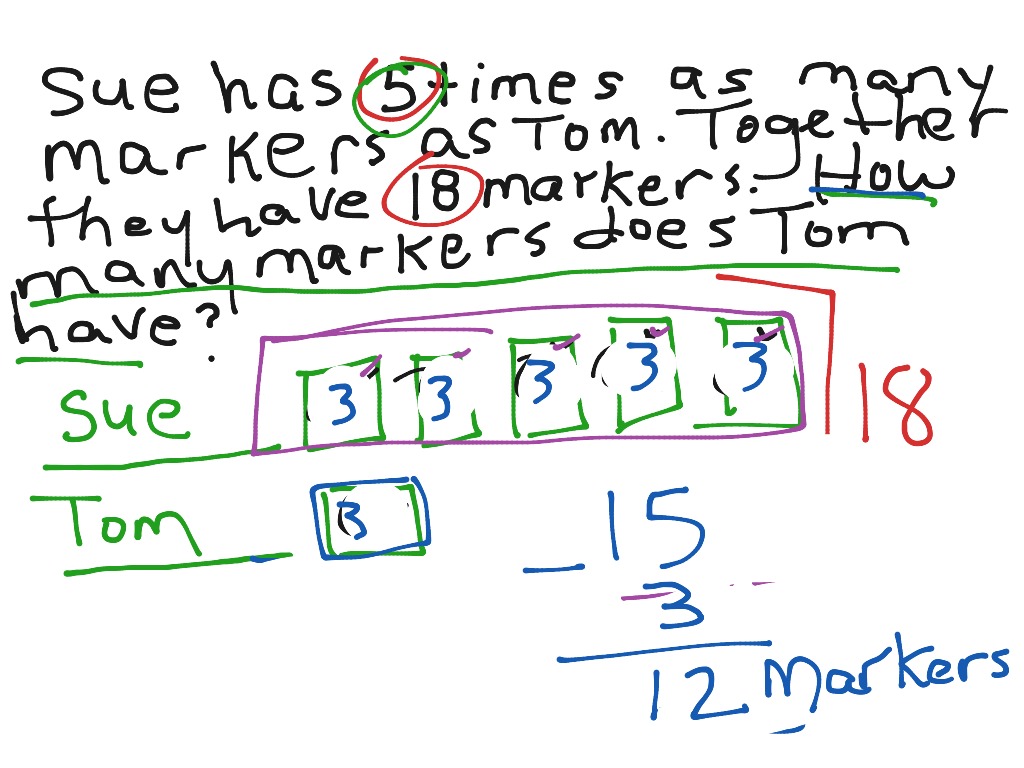 Sue has 5 times as many
markers as Tom. Together
they have 18 markers. How
many markers does Tom
have?
Sue 3 3 3 3 3 18
Tom 3
15
- 3
12 Markers